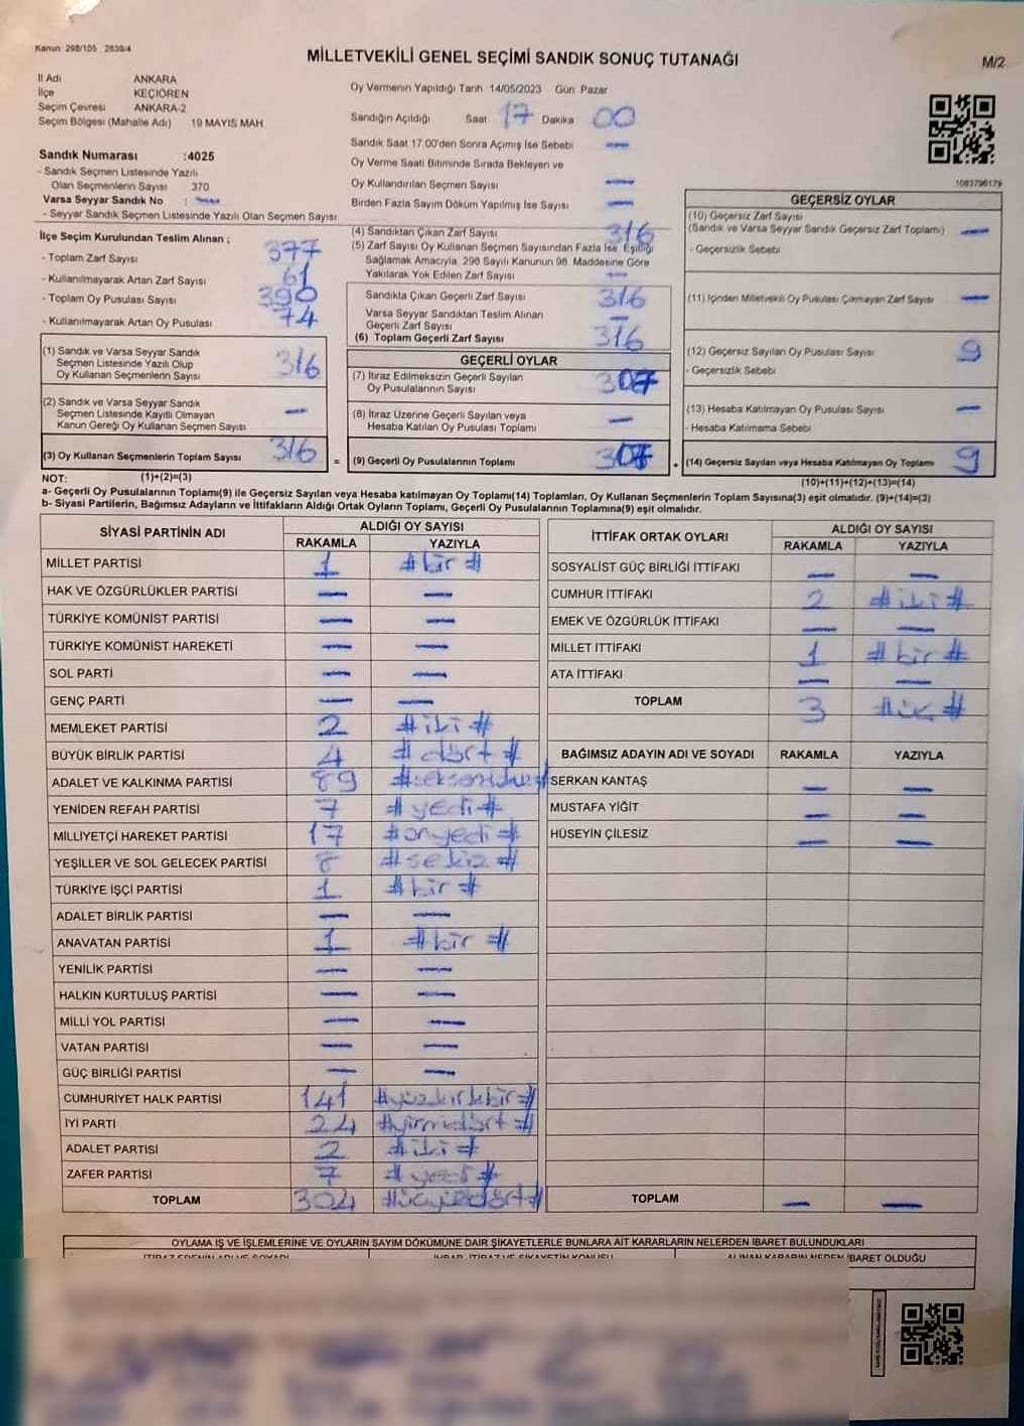 Kanun: 298/105 2839/4
MİLLETVEKİLİ GENEL SEÇİMİ SANDIK SONUÇ TUTANAĞI
M/2
İl Adı ANKARA
İlçe KEÇİÖREN
Seçim Çevresi ANKARA-2
Seçim Bölgesi (Mahalle Adı) 19 MAYIS MAH
Oy Vermenin Yapıldığı Tarih 14/05/2023 Gün Pazar
Sandığın Açıldığı Saat 17 Dakika 00
Sandık Saat 17.00'den Sonra Açımış İse Sebebi —
Oy Verme Saati Bitiminde Sırada Bekleyen ve
Oy Kullandırılan Seçmen Sayısı —
Birden Fazla Sayım Döküm Yapılmış İse Sayısı —
Sandık Numarası :4025
- Sandık Seçmen Listesinde Yazılı
Olan Seçmenlerin Sayısı 370
Varsa Seyyar Sandık No : —
- Seyyar Sandık Seçmen Listesinde Yazılı Olan Seçmen Sayısı
1083796179
İlçe Seçim Kurulundan Teslim Alınan ;
- Toplam Zarf Sayısı 377
- Kullanılmayarak Artan Zarf Sayısı 61
- Toplam Oy Pusulası Sayısı 390
- Kullanılmayarak Artan Oy Pusulası 74
(1) Sandık ve Varsa Seyyar Sandık
Seçmen Listesinde Yazılı Olup
Oy Kullanan Seçmenlerin Sayısı 316
(2) Sandık ve Varsa Seyyar Sandık
Seçmen Listesinde Kayıtlı Olmayan
Kanun Gereği Oy Kullanan Seçmen Sayısı —
(3) Oy Kullanan Seçmenlerin Toplam Sayısı 316
(1)+(2)=(3)
(4) Sandıktan Çıkan Zarf Sayısı 316
(5) Zarf Sayısı Oy Kullanan Seçmen Sayısından Fazla İse, Eşitliği
Sağlamak Amacıyla, 298 Sayılı Kanunun 98. Maddesine Göre
Yakılarak Yok Edilen Zarf Sayısı —
Sandıkta Çıkan Geçerli Zarf Sayısı 316
Varsa Seyyar Sandıktan Teslim Alınan
Geçerli Zarf Sayısı —
(6) Toplam Geçerli Zarf Sayısı 316
GEÇERLİ OYLAR
(7) İtiraz Edilmeksizin Geçerli Sayılan
Oy Pusulalarının Sayısı 307
(8) İtiraz Üzerine Geçerli Sayılan veya
Hesaba Katılan Oy Pusulası Toplamı —
= (9) Geçerli Oy Pusulalarının Toplamı 307
GEÇERSİZ OYLAR
(10) Geçersiz Zarf Sayısı
(Sandık ve Varsa Seyyar Sandık Geçersiz Zarf Toplamı) —
- Geçersizlik Sebebi
(11) İçinden Milletvekili Oy Pusulası Çıkmayan Zarf Sayısı —
(12) Geçersiz Sayılan Oy Pusulası Sayısı 9
- Geçersizlik Sebebi
(13) Hesaba Katılmayan Oy Pusulası Sayısı —
- Hesaba Katılmama Sebebi
+ (14) Geçersiz Sayılan veya Hesaba Katılmayan Oy Toplamı 9
(10)+(11)+(12)+(13)=(14)
NOT:
a- Geçerli Oy Pusulalarının Toplamı(9) ile Geçersiz Sayılan veya Hesaba katılmayan Oy Toplamı(14) Toplamları, Oy Kullanan Seçmenlerin Toplam Sayısına(3) eşit olmalıdır. (9)+(14)=(3)
b- Siyasi Partilerin, Bağımsız Adayların ve İttifakların Aldığı Ortak Oyların Toplamı, Geçerli Oy Pusulalarının Toplamına(9) eşit olmalıdır.
SİYASİ PARTİNİN ADI ALDIĞI OY SAYISI
RAKAMLA YAZIYLA
MİLLET PARTİSİ 1 #bir#
HAK VE ÖZGÜRLÜKLER PARTİSİ — —
TÜRKİYE KOMÜNİST PARTİSİ — —
TÜRKİYE KOMÜNİST HAREKETİ — —
SOL PARTİ — —
GENÇ PARTİ — —
MEMLEKET PARTİSİ 2 #iki#
BÜYÜK BİRLİK PARTİSİ 4 #dört#
ADALET VE KALKINMA PARTİSİ 89
YENİDEN REFAH PARTİSİ 7 #yedi#
MİLLİYETÇİ HAREKET PARTİSİ 17 #onyedi#
YEŞİLLER VE SOL GELECEK PARTİSİ 8 #sekiz#
TÜRKİYE İŞÇİ PARTİSİ 1 #bir#
ADALET BİRLİK PARTİSİ — —
ANAVATAN PARTİSİ 1 #bir#
YENİLİK PARTİSİ — —
HALKIN KURTULUŞ PARTİSİ — —
MİLLİ YOL PARTİSİ — —
VATAN PARTİSİ — —
GÜÇ BİRLİĞİ PARTİSİ — —
CUMHURİYET HALK PARTİSİ 141 #yüzkırkbir#
İYİ PARTİ 24 #yirmidört#
ADALET PARTİSİ 2 #iki#
ZAFER PARTİSİ 7 #yedi#
TOPLAM 304 #üçyüzdört#
İTTİFAK ORTAK OYLARI ALDIĞI OY SAYISI
RAKAMLA YAZIYLA
SOSYALİST GÜÇ BİRLİĞİ İTTİFAKI — —
CUMHUR İTTİFAKI 2 #iki#
EMEK VE ÖZGÜRLÜK İTTİFAKI — —
MİLLET İTTİFAKI 1 #bir#
ATA İTTİFAKI — —
TOPLAM 3 #üç#
BAĞIMSIZ ADAYIN ADI VE SOYADI RAKAMLA YAZIYLA
SERKAN KANTAŞ — —
MUSTAFA YİĞİT — —
HÜSEYİN ÇİLESİZ — —
TOPLAM — —
OYLAMA İŞ VE İŞLEMLERİNE VE OYLARIN SAYIM DÖKÜMÜNE DAİR ŞİKAYETLERLE BUNLARA AİT KARARLARIN NELERDEN İBARET BULUNDUKLARI
İTİRAZ EDENİN ADI VE SOYADI İHBAR, İTİRAZ VE ŞİKAYETİN KONUSU ALINAN KARARIN NEDEN İBARET OLDUĞU